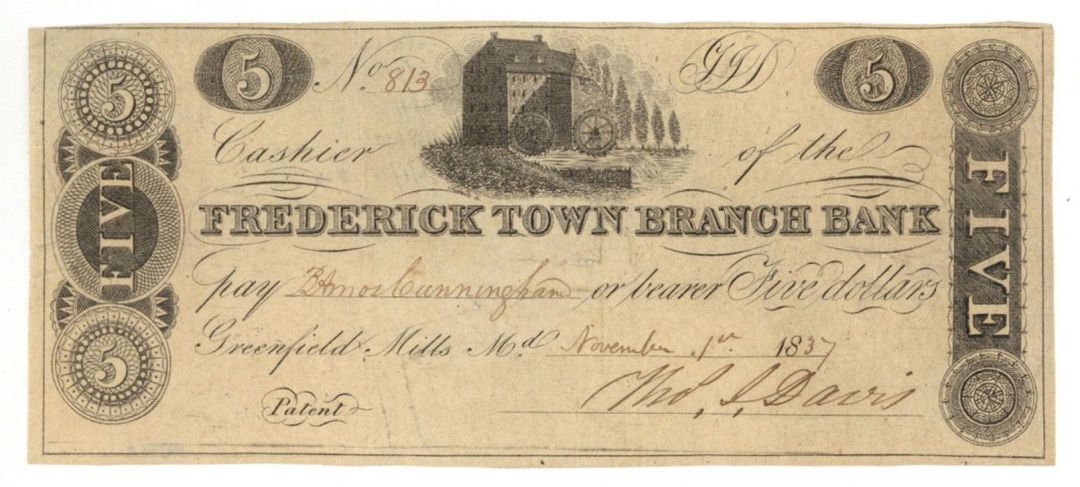 5 No. 813 5
Cashier of the
FREDERICK TOWN BRANCH BANK
pay Amos Cunningham or bearer Five dollars
Greenfield Mills Md. November 1st 1837
Patent Tho. I. Davis
5
FIVE
5
FIVE